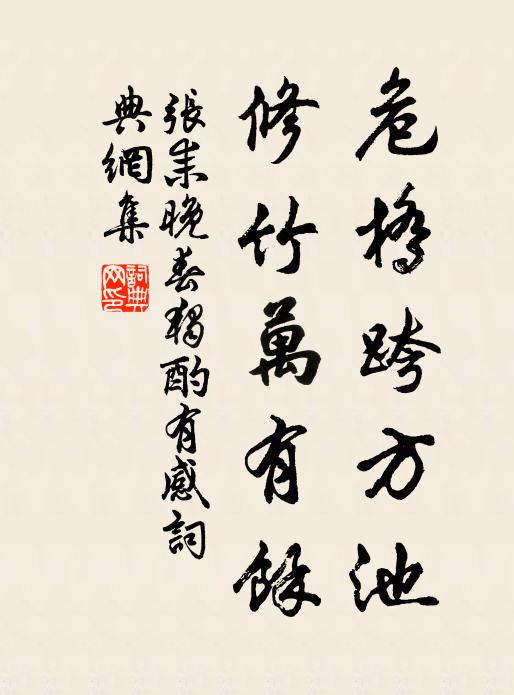 危橋跨方池
修竹萬有餘
張耒晚春獨酌有感詞
典網集
詞典網印